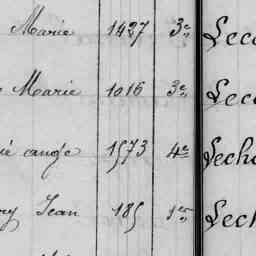 Marie 1427 3e Lec
Marie 1016 3e Lec
ié ange 1573 4e Lech
ry Jean 185 1er Lech